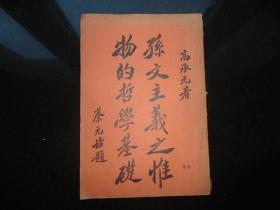 高承元著
孫文主義之惟
物的哲學基礎
蔡元培題